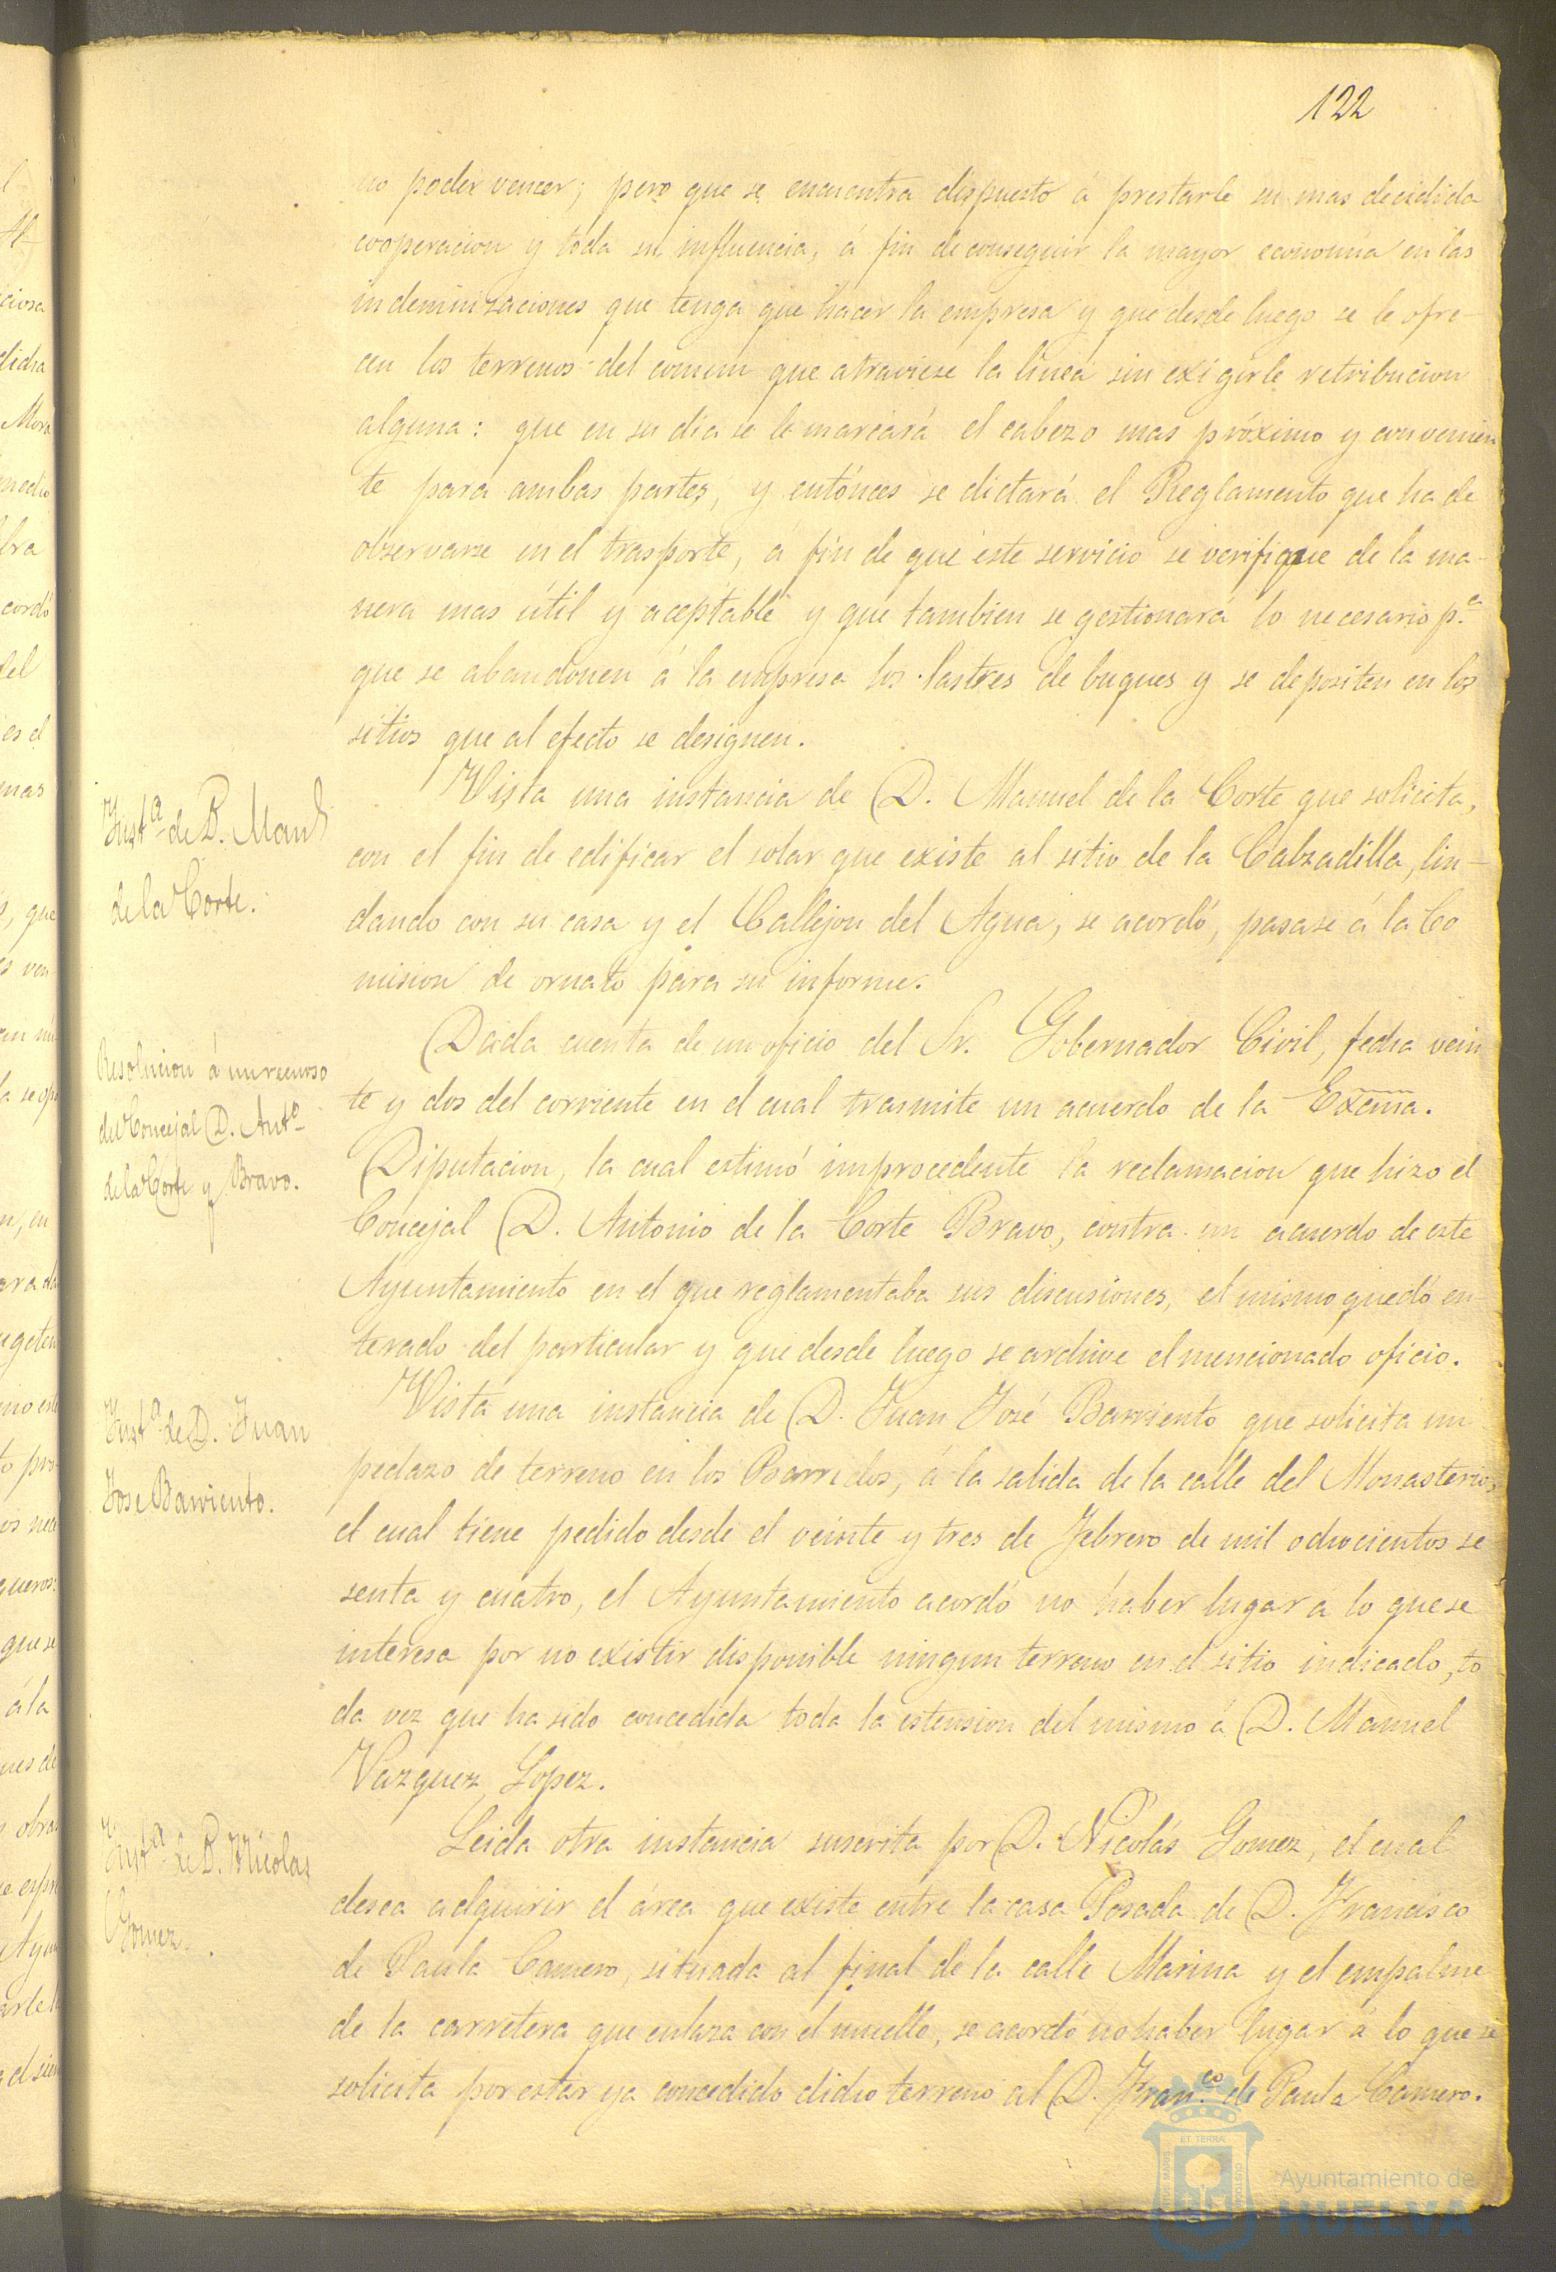 122
no poder vencer; pero que se encuentra dispuesto á prestarle su mas decidida
cooperacion y toda su influencia, á fin de conseguir la mayor economía en las
indemnizaciones que tenga que hacer la empresa y que desde luego se le ofre-
cen los terrenos del comun que atraviese la línea sin exigirle retribucion
alguna: que en su dia se le marcará el cabezo mas próximo y convenien
te para ambas partes, y entónces se dictará el Reglamento que ha de
observarse en el trasporte, á fin de que este servicio se verifique de la ma-
nera mas útil y aceptable y que tambien se gestionará lo necesario p.ª
que se abandonen á la empresa los lastres de buques y se depositen en los
sitios que al efecto se designen.
Inst.ª de D. Man.l
de la Corte.
Vista una instancia de D. Manuel de la Corte que solicita,
con el fin de edificar el solar que existe al sitio de la Calzadilla, lin-
dando con su casa y el Callejon del Agua, se acordó, pasase á la Co
mision de ornato para su informe.
Resolucion á un recurso
del Concejal D. Ant.º
de la Corte y Bravo.
Dada cuenta de un oficio del Sr. Gobernador Civil, fecha vein
te y dos del corriente en el cual trasmite un acuerdo de la Excma.
Diputacion, la cual estimó improcedente la reclamacion que hizo el
Concejal D. Antonio de la Corte Bravo, contra un acuerdo de este
Ayuntamiento en el que reglamentaba sus discusiones, el mismo quedó en-
terado del particular y que desde luego se archive el mencionado oficio.
Inst.ª de D. Juan
José Barriento.
Vista una instancia de D. Juan José Barriento que solicita un
pedazo de terreno en los Barredos, á la salida de la calle del Monasterio,
el cual tiene pedido desde el veinte y tres de Febrero de mil ochocientos se
senta y cuatro, el Ayuntamiento acordó no haber lugar a lo que se
interesa por no existir disponible ningun terreno en el sitio indicado, to
da vez que ha sido concedida toda la estension del mismo á D. Manuel
Vazquez Lopez.
Inst.ª de D. Nicolas
Gomez.
Leida otra instancia suscrita por D. Nicolás Gomez, el cual
desea adquirir el área que existe entre la casa Posada de D. Francisco
de Paula Camero, situada al final de la calle Marina y el empalme
de la carretera que enlaza con el muelle, se acordó no haber lugar á lo que se
solicita por estar ya concedido dicho terreno al D. Fran.co de Paula Camero.
Ayuntamiento de
HUELVA